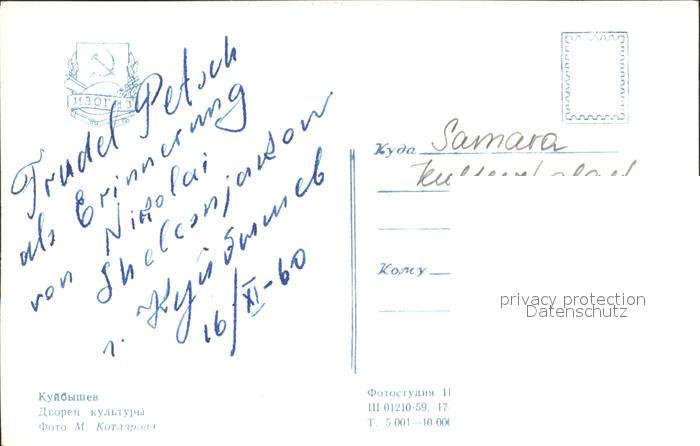 ИЗОГИЗ
Trudel Petsch
als Erinnerung
von Nikolai
г. Куйбышев
16/XI-60
Куйбышев
Дворец культуры
Фото М. Котлярова
Куда Samara
Кому
privacy protection
Datenschutz
Фотостудия
Ш 01210-59. 17-
Т. 5 001—10 000